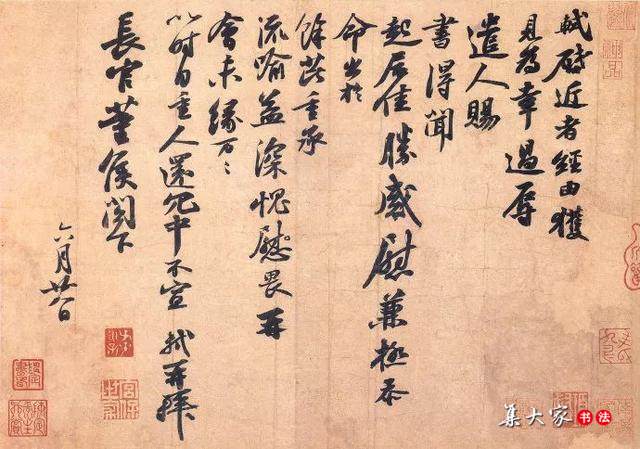 軾啓近者經由獲
見為幸過辱
遣人賜
書得聞
起居佳勝感慰兼極忝
命出於
餘芘重承
流喻益深愧慰畏再
會未緣萬〻
以時自重人還冗中不宣 軾再拜
長官董侯閤下
六月廿八日
集大家书法